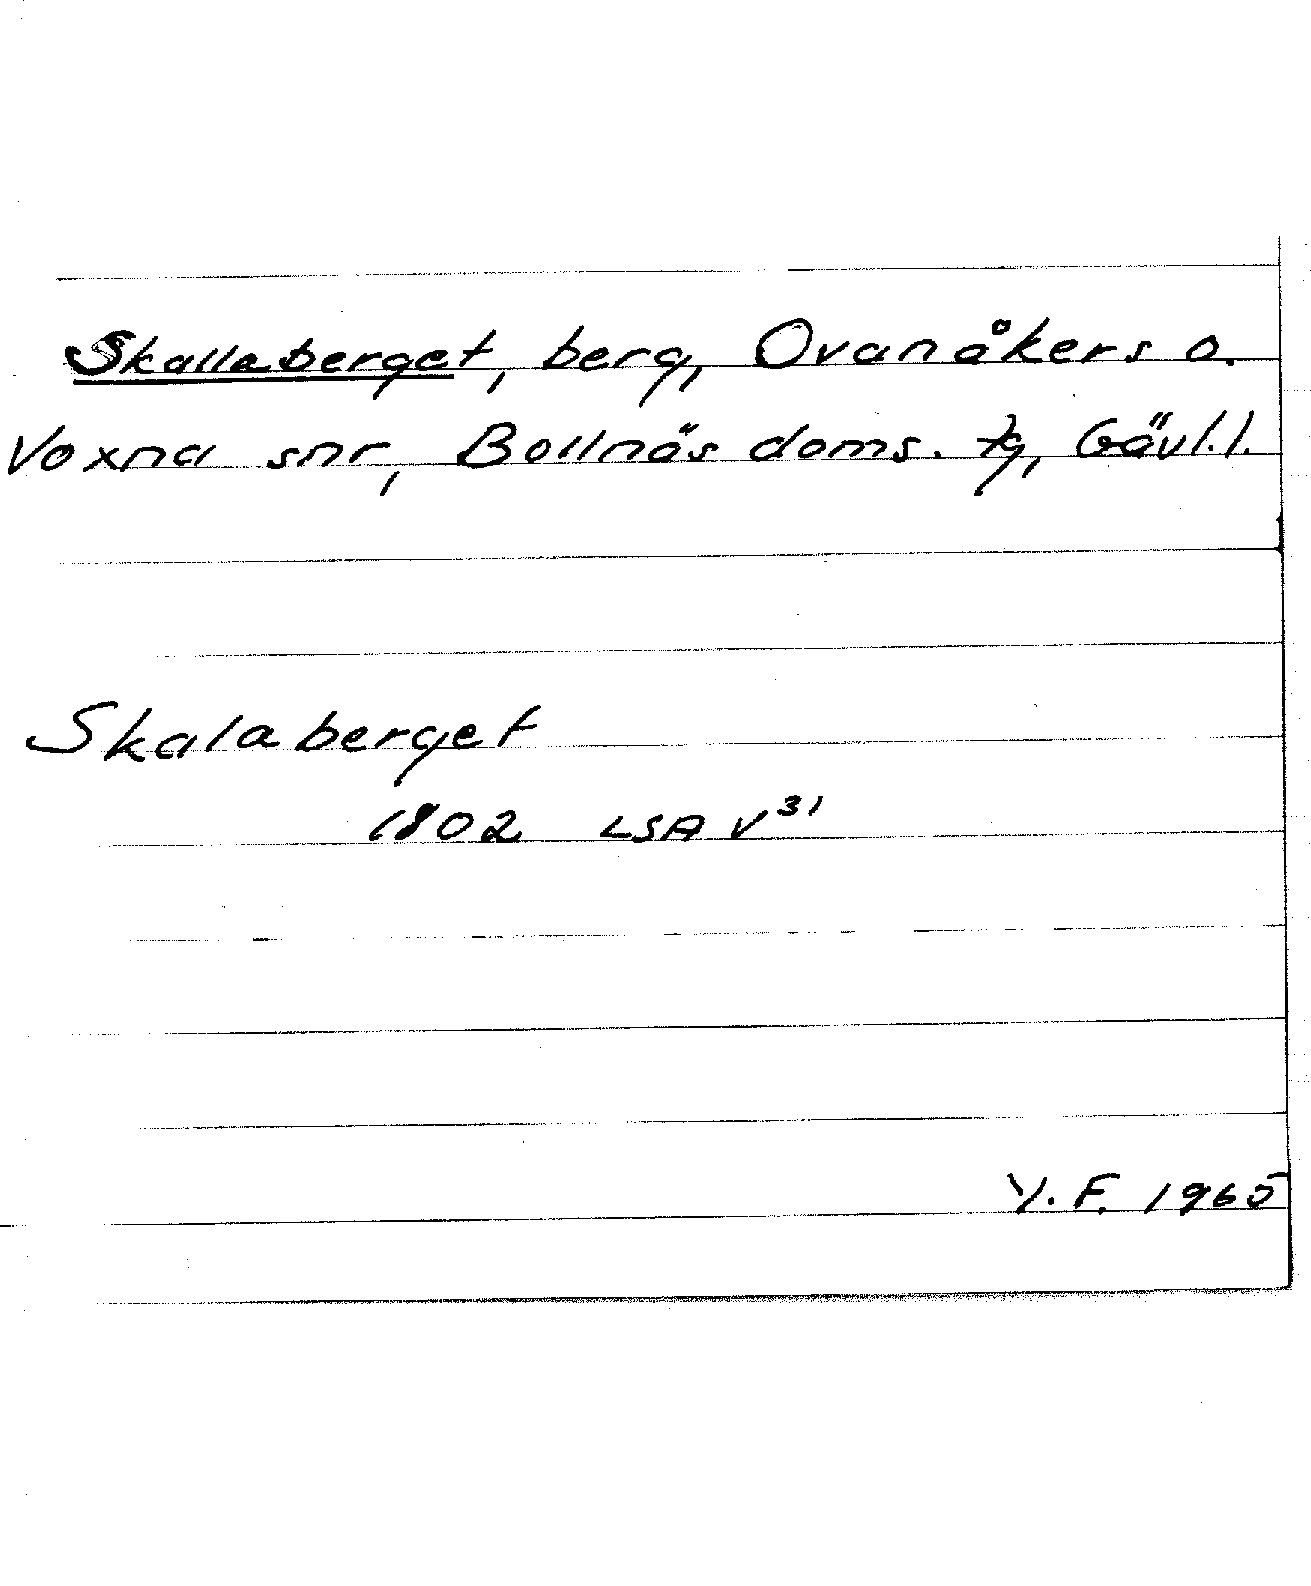 Skallaberget, berg, Ovanåkers o.
Voxna snr, Bollnäs doms. tg, Gävl.l.
Skalaberget
1802 LSA V³¹
Y.F. 1965